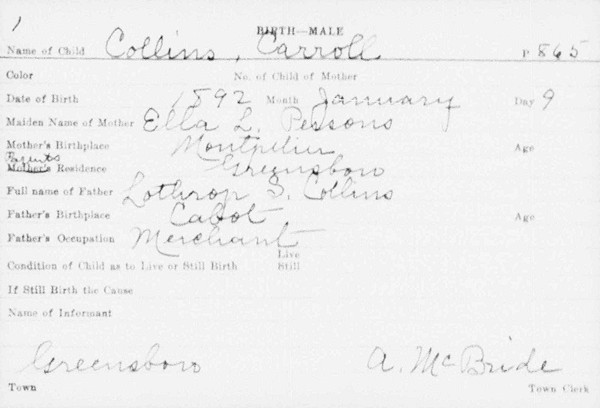 1
BIRTH—MALE
Name of Child Collins, Carroll P 865
Color No. of Child of Mother
Date of Birth 1892 Month January Day 9
Maiden Name of Mother Ella L. Persons
Mother's Birthplace Montpelier Age
Parents
Mother's Residence Greensboro
Full name of Father Lothrop S. Collins
Father's Birthplace Cabot Age
Father's Occupation Merchant
Live
Condition of Child as to Live or Still Birth Still
If Still Birth the Cause
Name of Informant
Greensboro A. McBride
Town Town Clerk